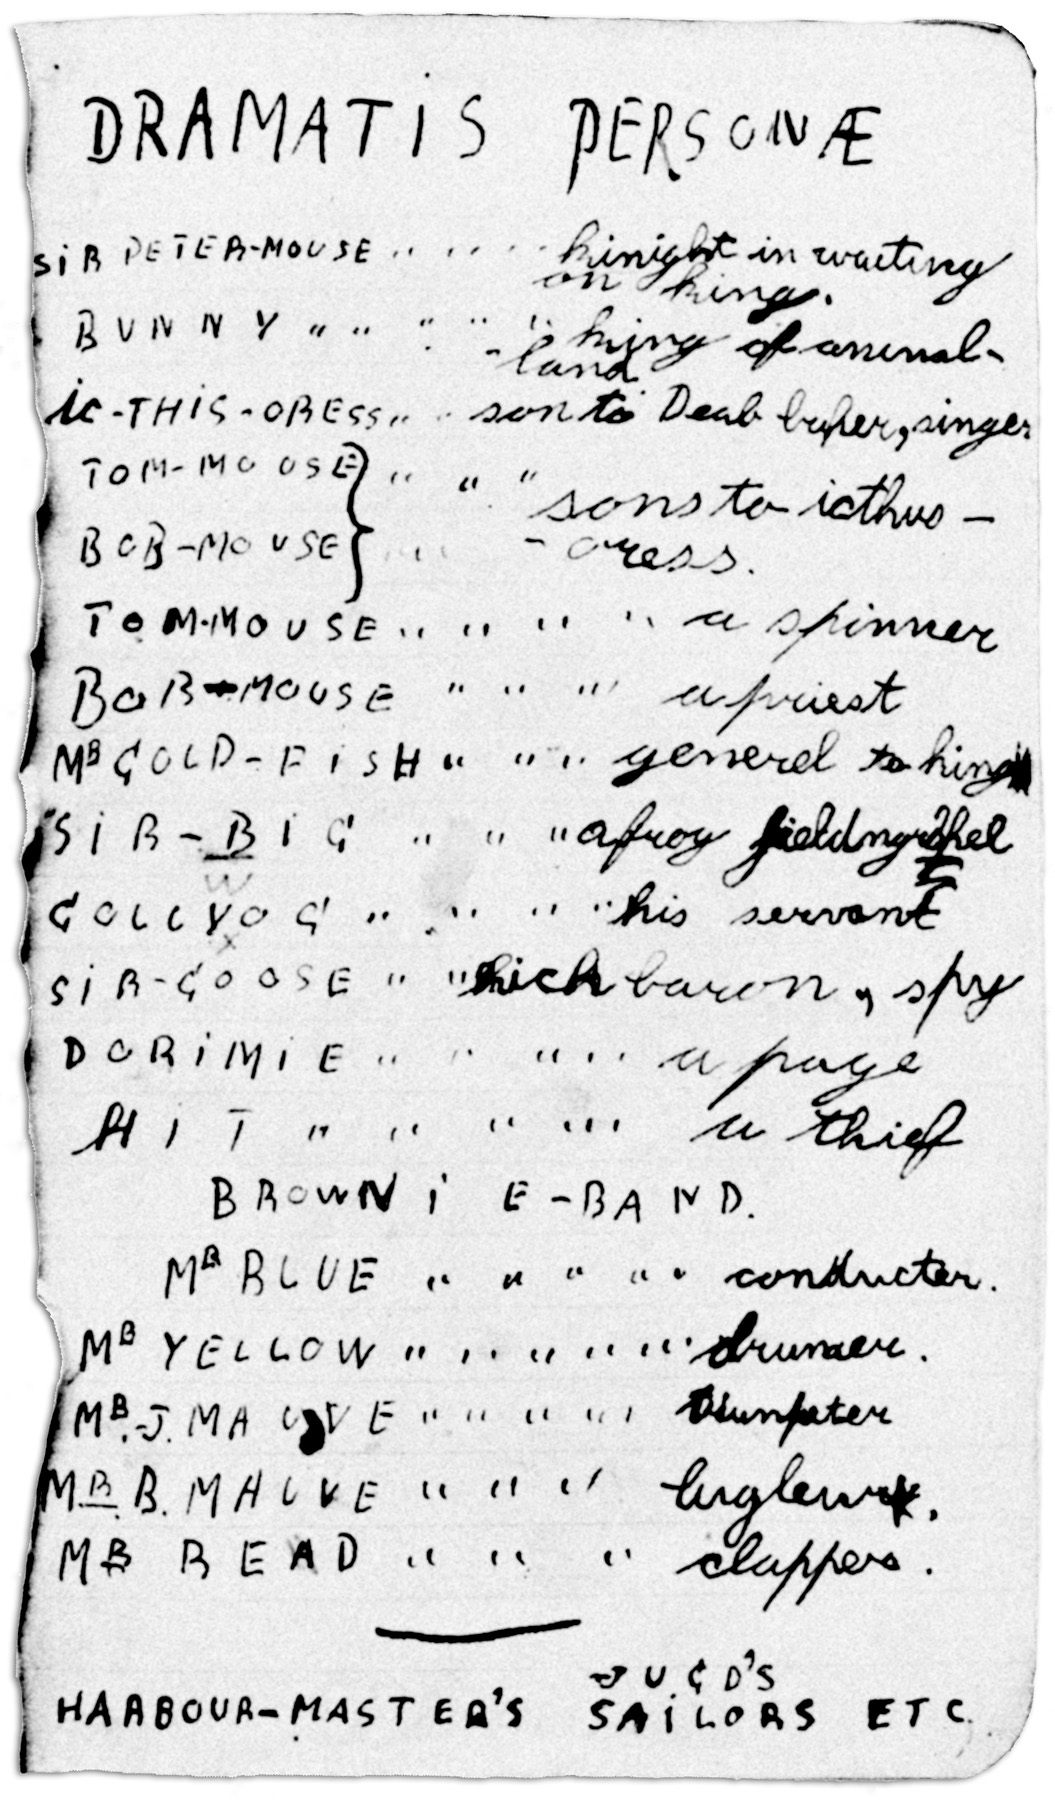 DRAMATIS PERSONÆ
SIR PETER-MOUSE " " " " kinight in waiting
on king.
BUNNY " " " " " king of animal-
-land
IC-THIS-ORESS " " son to Deab baker, singer
TOM-MOUSE } " " "
sons to icthus-
BOB-MOUSE } " " -oress.
TOM-MOUSE " " " " a spinner
BOB-MOUSE " " " a priest
MR GOLD-FISH " " " general to king
SIR-BIG " " " a frog
GOLLYWOG " " " " his servant
SIR-GOOSE " " baron, spy
DORIMIE " " " " a page
HIT " " " " a thief
BROWNIE-BAND.
MR BLUE " " " " " conducter.
MR YELLOW " " " " " drumer.
MR. J. MAUVE " " " " " trumpeter
MR. B. MAUVE " " " "
MR READ " " " clappers.
JUGD'S
HARBOUR-MASTER'S SAILORS ETC